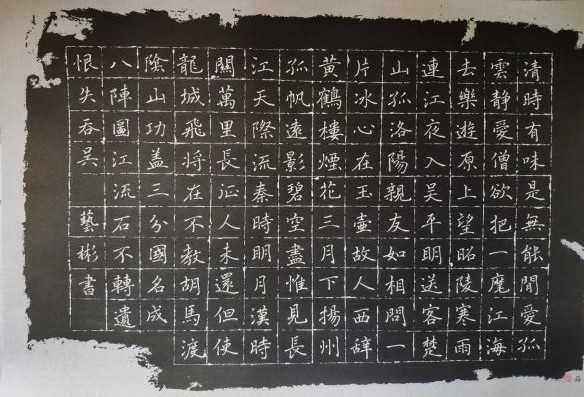 清時有味是無能閒愛孤
雲靜愛僧欲把一麾江海
去樂遊原上望昭陵寒雨
連江夜入吳平明送客楚
山孤洛陽親友如相問一
片冰心在玉壺故人西辭
黃鶴樓煙花三月下揚州
孤帆遠影碧空盡惟見長
江天際流秦時明月漢時
關萬里長征人未還但使
龍城飛將在不教胡馬渡
陰山功蓋三分國名成
八陣圖江流石不轉遺
恨失吞吳 藝彬書